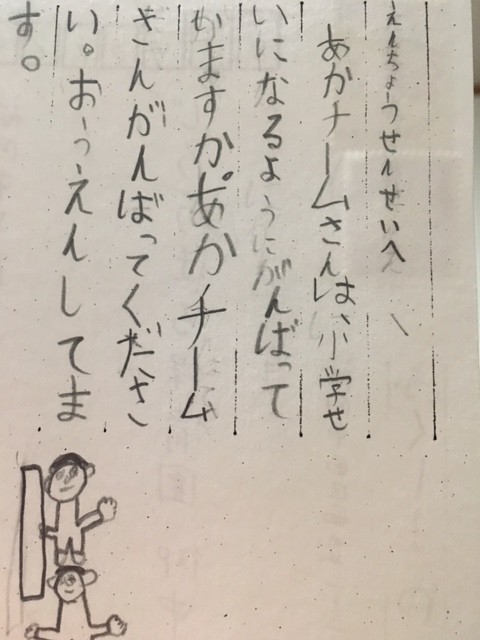 えんちょうせんせいへ
あかチームさんは、小学せ
いになるようにがんばって
いますか。あかチーム
さんがんばってくださ
い。おうえんしてま
す。